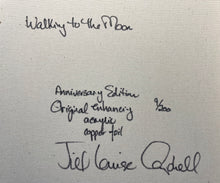 Walking to the Moon
Anniversary Edition
Original enhancing 9/200
acrylic
copper foil
Louise